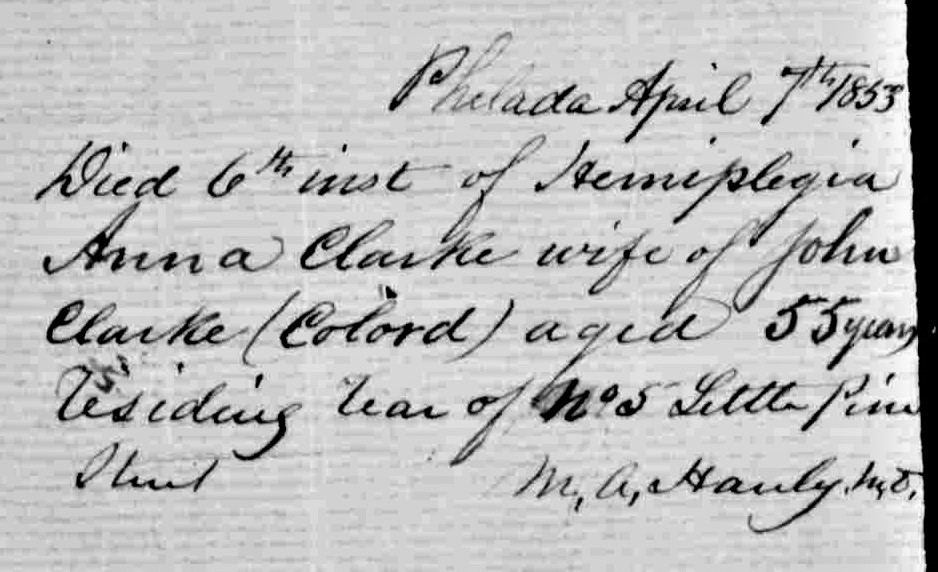 Philada April 7th 1853
Died 6th inst of Hemiplegia
Anna Clarke wife of John
Clarke (Colord) aged 55 years
Residing rear of No 5 Little Pine
Street M. A. Hanly. M.D.